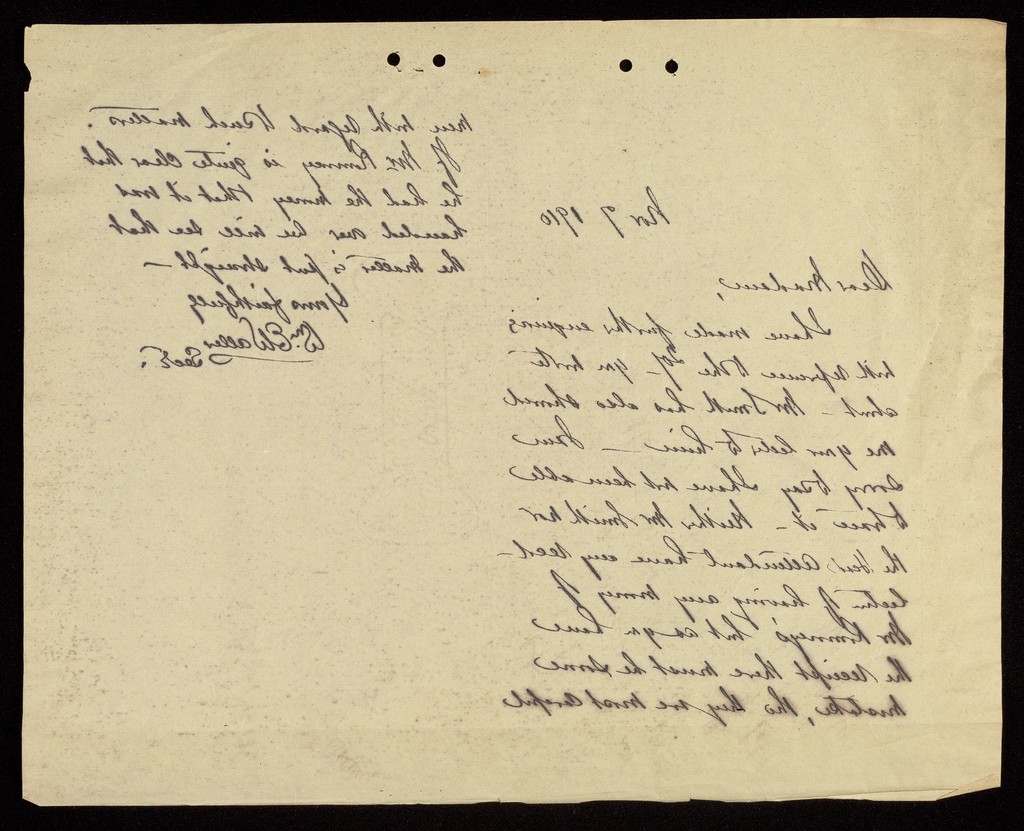 Nov 7 1910
Dear Madam,
I have made further enquiries
with reference to the 20/- you write
about - Mr Smith has also shewed
me your letter to him — I am
sorry to say I have not been able
to trace it - Neither Mr Smith nor
the Attendant have any recol-
lection of having any money of
Mr Romney's but as you have
the receipt there must be some
mistake, tho they are most careful
men with regard to such matters.
If Mr Romney is quite clear that
he had the money & that it was
handed over he will see that
the matter is put straight —
Yours faithfully
Wm. E. Waller
Secy.